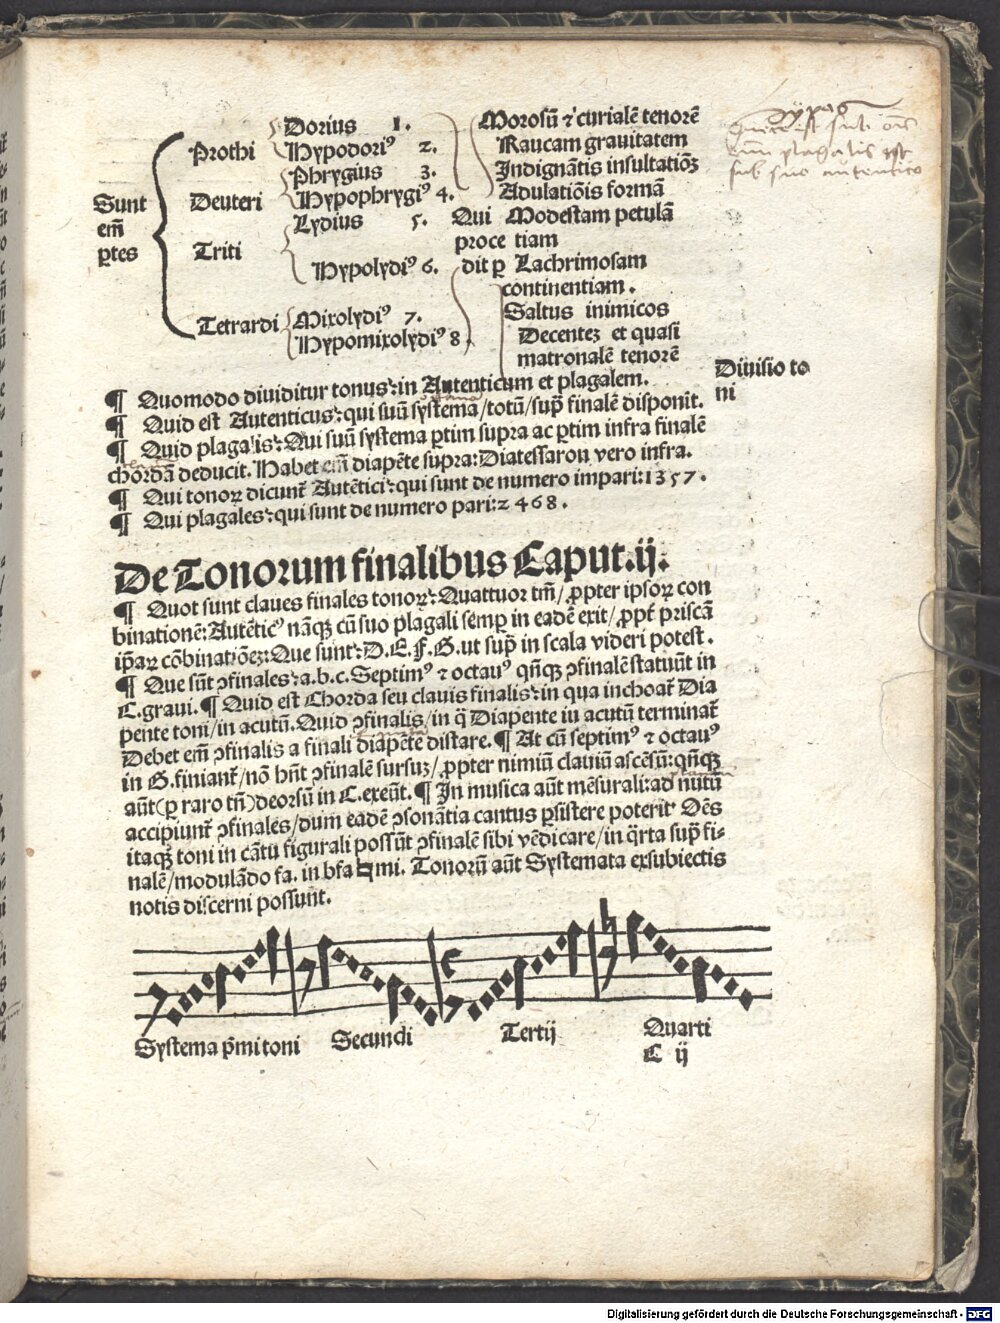 Sunt em̄ ꝑtes
Prothi
Dorius 1.
Hypodoriꝰ 2.
Deuteri
Phrygius 3.
Hypophrygiꝰ 4.
Triti
Lydius 5.
Hypolydiꝰ 6.
Tetrardi
Mixolydiꝰ 7.
Hypomixolydiꝰ 8.
Qui procedit ꝑ
Morosū ⁊ curialē tenorē
Raucam grauitatem
Indignātis insultatiōꝫ
Adulatiōis formā
Modestam petulā
tiam
Lachrimosam
continentiam.
Saltus inimicos
Decenteꝫ et quasi
matronalē tenorē
plagalis est
sub suo autentico
Diuisio to
ni
¶ Quomodo diuiditur tonus: in Autenticum et plagalem.
¶ Quid est Autenticus: qui suū systema/totū/sup̄ finalē disponit.
¶ Quid plagalis: Qui suū systema ꝑtim supra ac ꝑtim infra finalē
chordā deducit. Habet em̄ diapēte supra: Diatessaron vero infra.
¶ Qui tonoꝝ dicunt̄ Autētici: qui sunt de numero impari: 1 3 5 7.
¶ Qui plagales: qui sunt de numero pari: 2 4 6 8.
De Tonorum finalibus Caput.ij.
¶ Quot sunt claues finales tonoꝝ: Quattuor tm̄/ ꝓpter ipsoꝝ con
binationē: Autēticꝰ nāqꝫ cū suo plagali semꝑ in eadē exit/ ꝓpt̄ priscā
ip̄aꝝ cōbinatiōeꝫ: Que sunt: D.E.F.G. ut sup̄ in scala videri potest.
¶ Que sūt ꝯfinales: a.b.c. Septimꝰ ⁊ octauꝰ qn̄qꝫ ꝯfinalē statuūt in
C.graui. ¶ Quid est Chorda seu clauis finalis: in qua inchoat̄ Dia
pente toni/ in acutū. Quid ꝯfinalis/ in q̄ Diapente in acutū terminat̄
Debet em̄ ꝯfinalis a finali diapēte distare. ¶ At cū septimꝰ ⁊ octauꝰ
in G.finiant̄/ nō hn̄t ꝯfinalē sursuꝫ/ ꝓpter nimiū clauiū ascēsū: qn̄qꝫ
aūt (ꝑ raro tn̄) deorsū in C.exeūt. ¶ In musica aūt mēsurali: ad nutū
accipiunt̄ ꝯfinales/ dum eadē ꝯsonātia cantus ꝑsistere poterit Oēs
itaqꝫ toni in cātu figurali possūt ꝯfinalē sibi vēdicare/ in q̄rta sup̄ fi-
nalē/ modulādo fa. in bfa ♮ mi. Tonorū aūt Systemata ex subiectis
notis discerni possunt.
Systema p̄mi toni Secundi Tertij Quarti
C ij
Digitalisierung gefördert durch die Deutsche Forschungsgemeinschaft - DFG